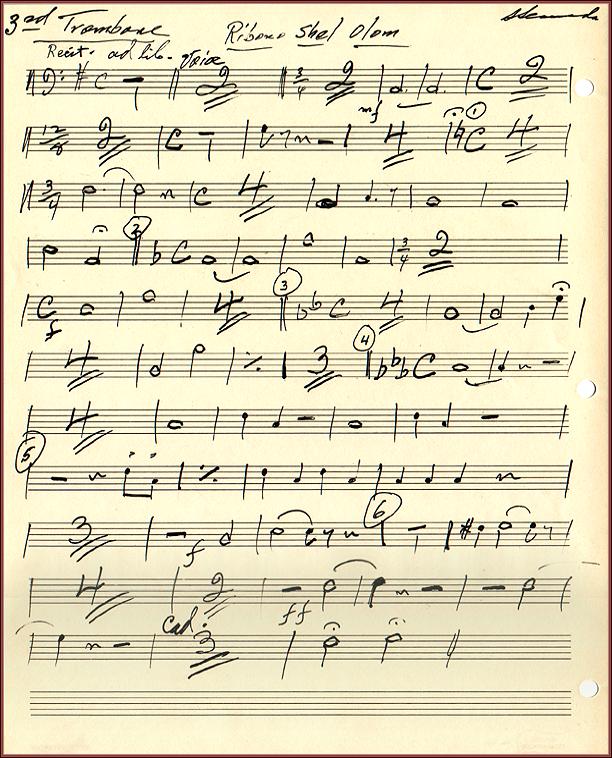 3rd Trombone Ribono Shel Olom
Recit. ad lib. Voice
C 2 3/4 2 C 2
mf
12/8 2 C 4 1 C 4
3/4 C 4
2 C 3/4 2
C 4 3 C 4
f
4 3 4 C
4
5
3 f 6
4 2 ff
Cad. 3